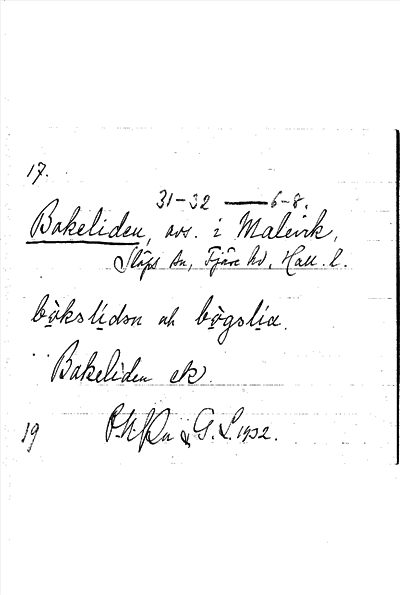 17.
31-32 — 6-8.
Bokeliden, avs. i Malevik,
Släps sn, Fjäre hd, Hall. l.
bòkslìdən ok bògslia.
Bakeliden ek.
19 &. G. L. 1932.